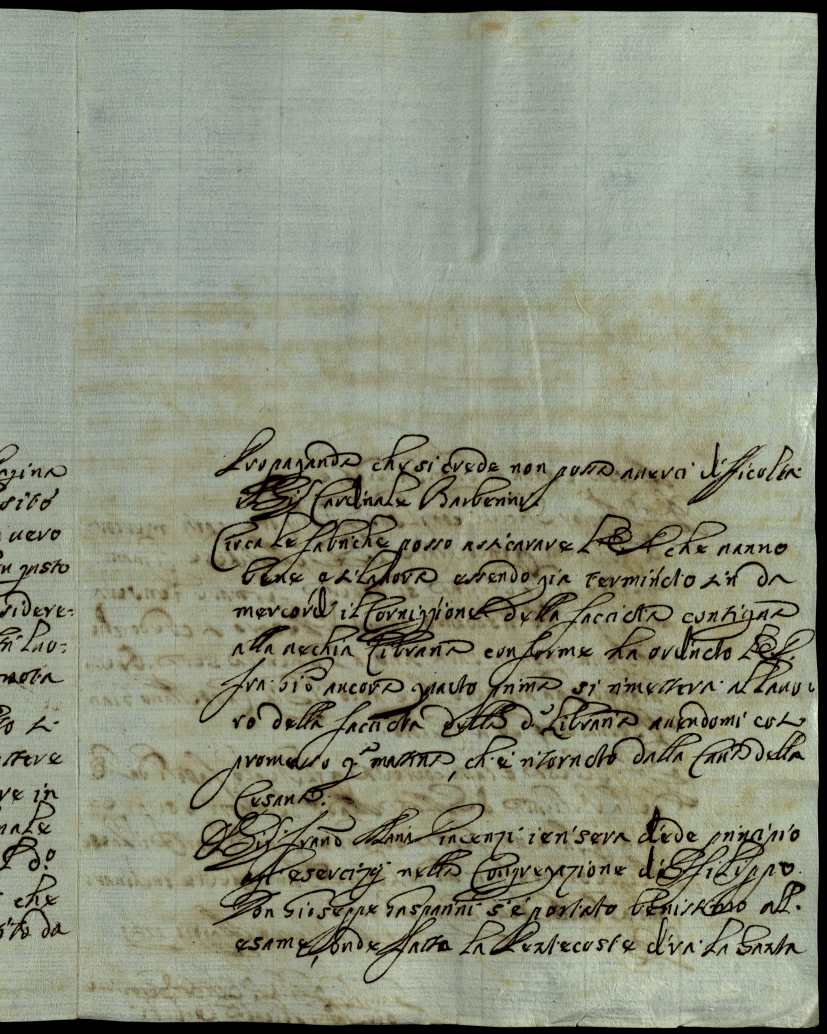 agina
sito
uero
gusto
sidere-
Lau-
nota
ettere
re in
nale
do
che
to da
Propaganda che si crede non possa auerci dificoltà
il Sig Cardinale Barberini
Circa le fabriche posso assicurare V.E. che uanno
bene e si lauora essendo già terminato sin da
mercordì il Cornigione della facciata contigua
alla uechia Libraria conforme ha ordinato V.E.
fra Giō ancora quanto prima si rimetterà al lauo
ro della facciata della dª Libraria auendomi così
promesso qª matina, ch'è ritornato dalla Caua della
Cesana.
Il Sig. Franc Maria ieri sera diede principio
all' esercizij nella Congregazione di S Filippo.
Don Gioseppe Gasparini s'è portato benissimo all'
esame, onde fatta la Pentecoste dirà la Santa